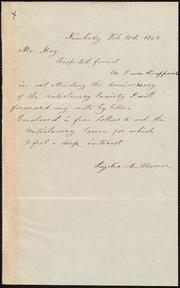 Feb 10th 1853
Mr May
Respected friend
As I was disappoin
in not attending the Anniversary
of the Antislavery Society I will
forward my mite by letter
Enclosed is five dollars to aid the
Antislavery Cause for which
I feel a deep interest
Lydia M.